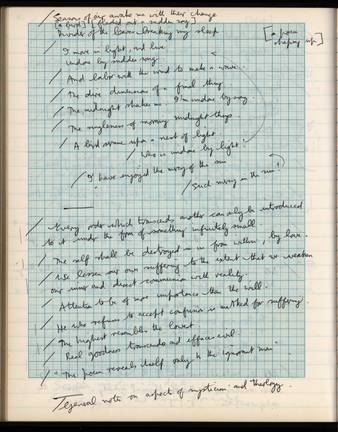 Seasons of our awake me with their change
[a bird] [folded out a sudden ray]
Murder of the leaves breaking my sleep
[a poem shaping up.]
/ I move in light, and live
Undone by sudden ray
/ And labor with the wind to make a wave.
/ The dire dimension of a final thing
/ The midnight shakes in I'm undone by ray.
/ The singleness of morning midnight things
/ A bird arose upon a nest of light
/ Who is undone by light!
/ I have enjoyed the wrong of the sun
/ Such wrong in the sun!
/ Every order which transcends another can only be introduced
to it under the form of something infinitely small.
/ The self shall be destroyed — in from within, by love.
/ We lessen our own suffering to the extent that we weaken
our inner and direct communion with reality.
/ Attention to be of more importance than the will.
/ He who refuses to accept confusion is marked for suffering.
/ The highest resembles the lowest.
/ Real goodness transcends and effaces evil.
/ The poem reveals itself only to the ignorant man.
general note on aspect of mysticism and theology.